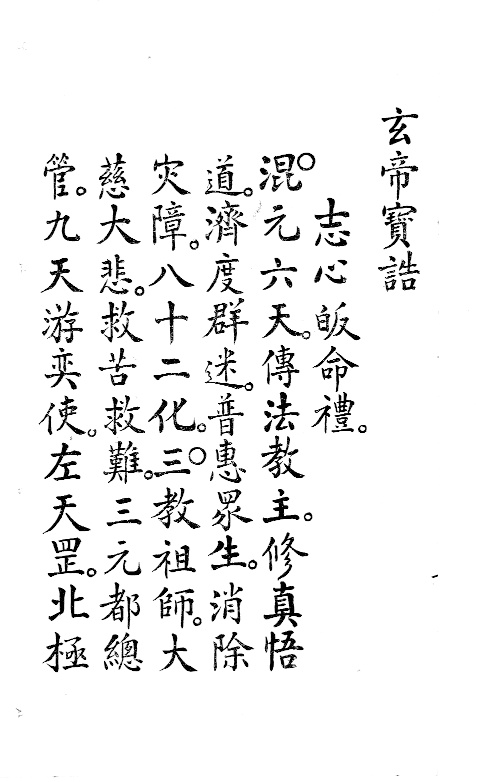 玄帝寶誥
志心皈命禮。
混元六天。傳法教主。修真悟
道。濟度群迷。普惠眾生。消除
灾障。八十二化。三教祖師。大
慈大悲。救苦救難。三元都總
管。九天游奕使。左天罡。北極